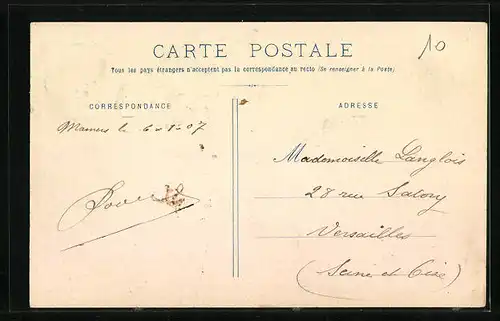 CARTE POSTALE
10
Tous les pays étrangers n'acceptent pas la correspondance au recto (Se renseigner à la Poste)
CORRESPONDANCE
Mamers le 6-1-07
ADRESSE
Mademoiselle Langlois
28 rue Satory
Versailles
(Seine et Oise)